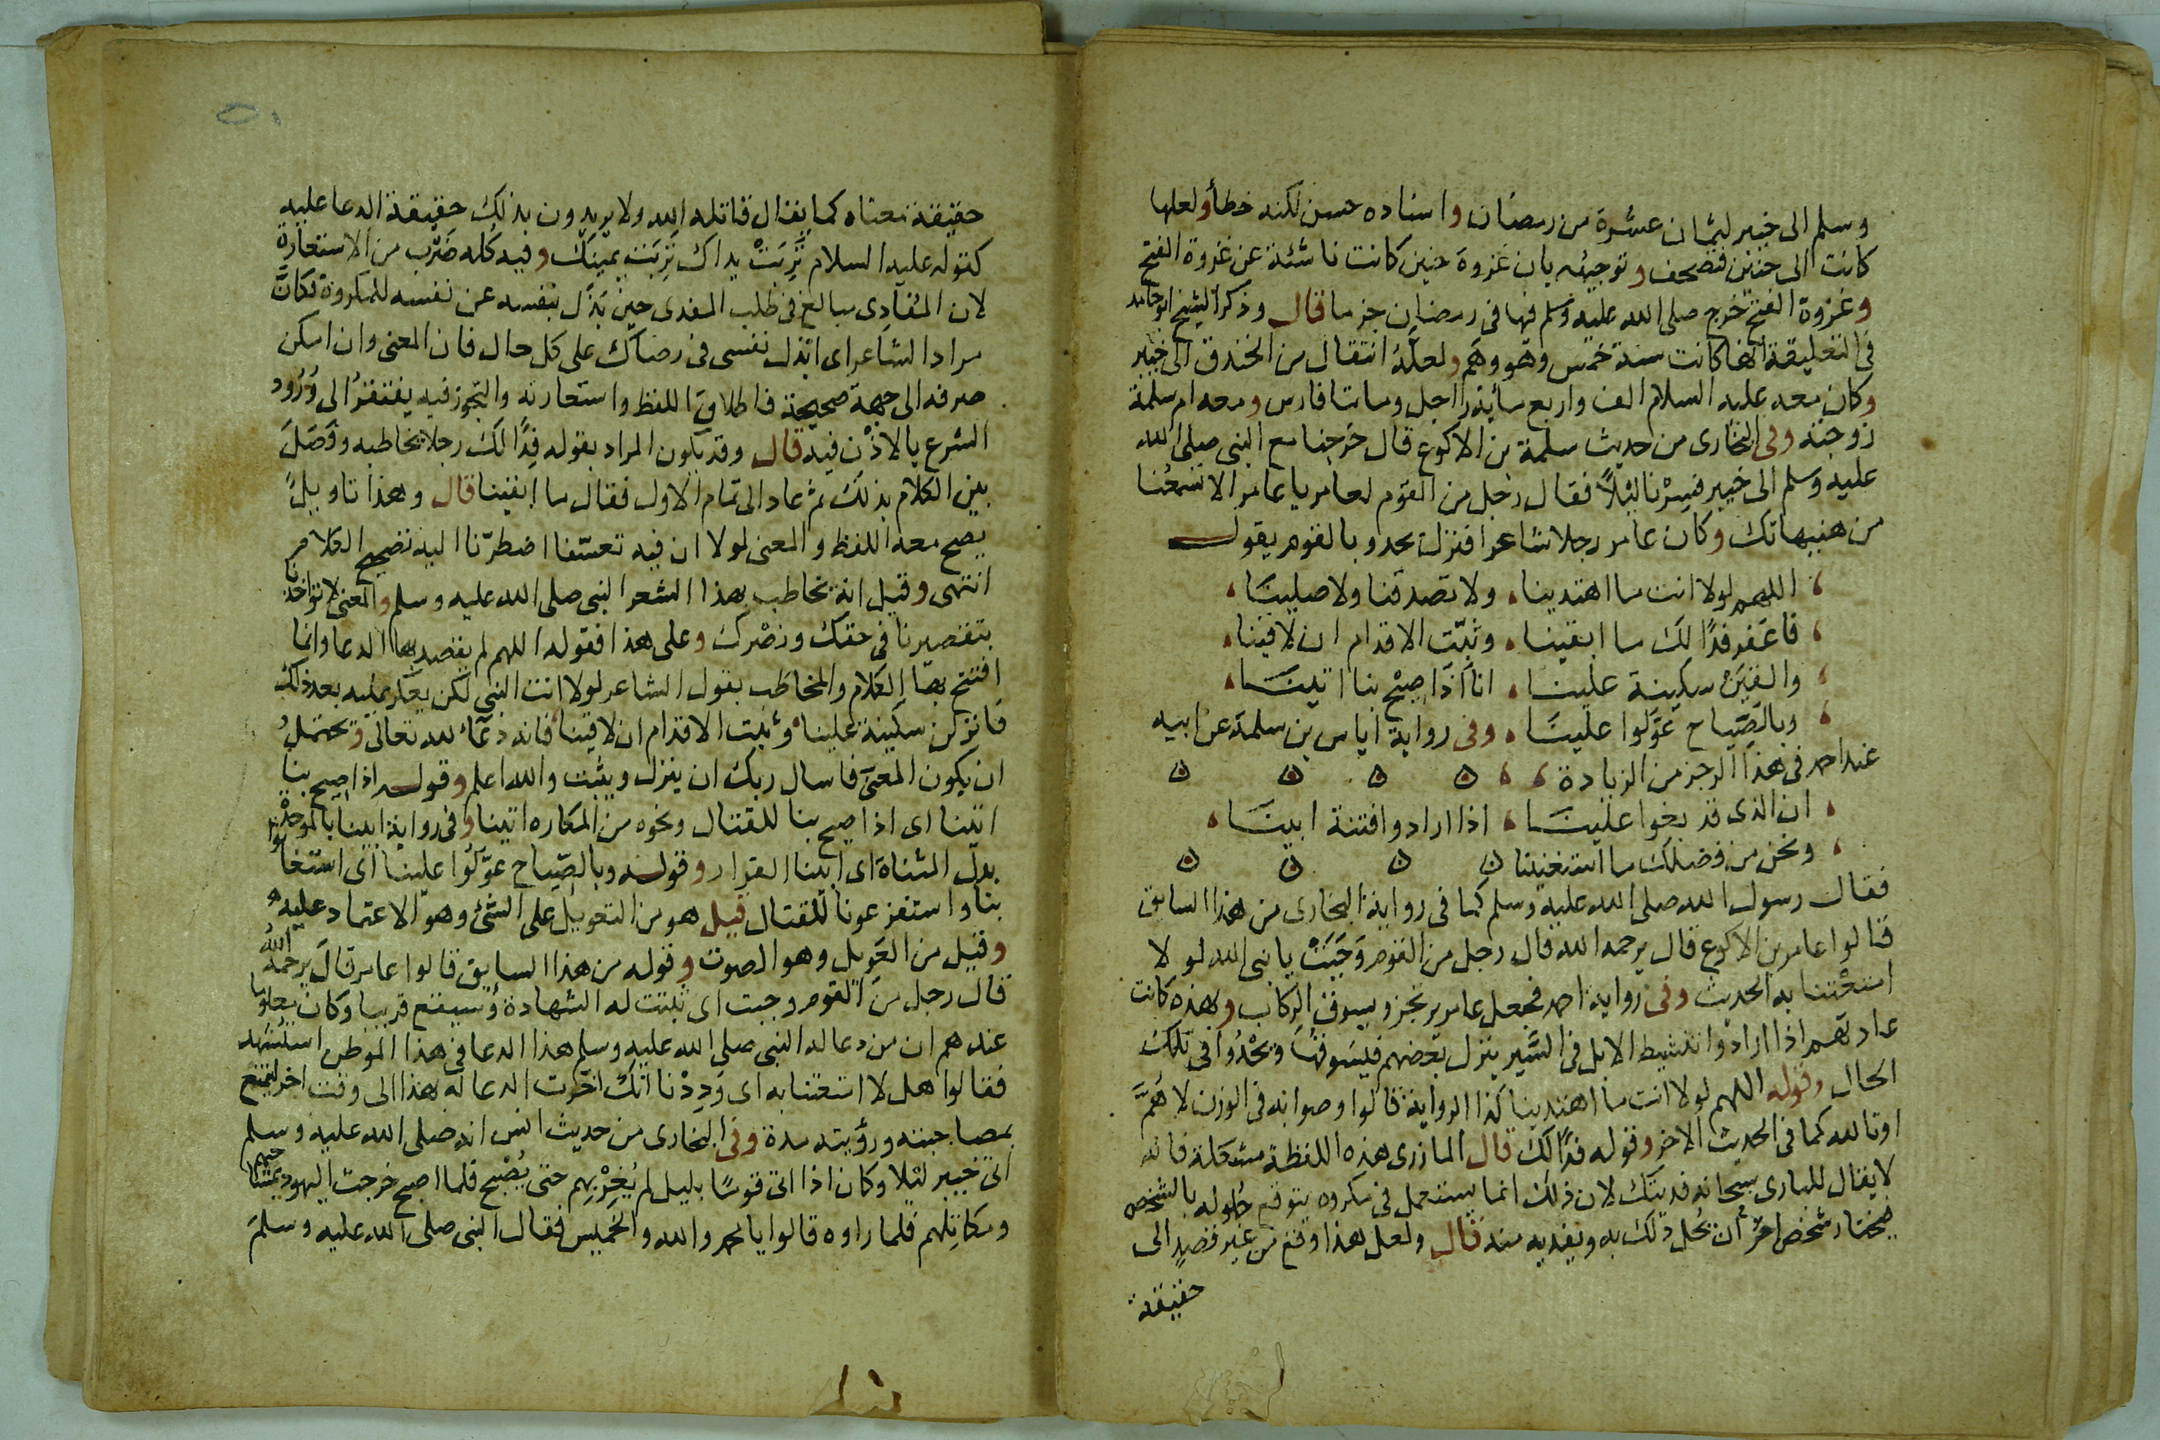 وسلم الى خيبر لثمان عشرة من رمضان واسناده حسن لكنه خطأ ولعلها
كانت الى حنين فتصحف وتوجيهه بان غزوة حنين كانت ناشئة عن غزوة الفتح
وغزوة الفتح خرج صلى الله عليه وسلم فيها فى رمضان جزما قال وذكر الشيخ ابو حامد
فى التعليقة انها كانت سنة خمس وهو وهم ولعله انتقال من الخندق الى خيبر
وكان معه عليه السلام الف واربع مائة راجل ومائتا فارس ومعه ام سلمة
زوجته وفى البخارى من حديث سلمة بن الاكوع قال خرجنا مع النبى صلى الله
عليه وسلم الى خيبر فسرنا ليلاً فقال رجل من القوم لعامر يا عامر الا تسمعنا
من هنيهاتك وكان عامر رجلا شاعرا فنزل يحدو بالقوم يقول
اللهم لولا انت ما اهتدينا ، ولا تصدقنا ولا صلينا ،
فاغفر فدًا لك ما ابقينا ، وثبّت الاقدام ان لاقينا ،
والقين سكينة علينا ، انا اذا صيح بنا اتينا ،
وبالصّياح عوّلوا علينا ، وفى رواية اياس بن سلمة عن ابيه
عند احمد فى هذا الرجز من الزيادة ،
ان الذى قد بغوا علينا ، اذا ارادوا فتنة ابينا ،
ونحن من فضلك ما استغنينا
فقال رسول الله صلى الله عليه وسلم كما فى رواية البخارى من هذا السابق
قالوا عامر بن الاكوع قال يرحمه الله قال رجل من القوم وَجَبَتْ يا نبى الله لولا
امتعتنا به الحديث وفى رواية احمد فجعل عامر يرتجز ويسوق الركاب وهذه كانت
عادتهم اذا ارادوا تنشيط الابل فى السير ينزل بعضهم فيسوقها ويحدوا فى تلك
الحال وقوله اللهم لولا انت ما اهتدينا كذا الرواية قالوا وصوابه فى الوزن لاهمّ
او تالله كما فى الحديث الاخر وقوله فدًا لك قال المازرى هذه اللفظة مشكلة فانه
لا يقال للبارى سبحانه فديتك لان ذلك انما يستعمل فى مكروه يتوقع حلوله بالشخص
فيختار شخص اخر ان يحل ذلك به ويفديه منه قال ولعل هذا وقع من غير قصد الى
حقيقة
حقيقة معناه كما يقال قاتله الله ولا يريدون بذلك حقيقة الدعا عليه
كقوله عليه السلام تَرِبَتْ يداك تربت يمينك وفيه كله ضرب من الاستعارة
لان المفادى مبالغ فى طلب المفدى حين بذل بنفسه عن نفسه للمكروه فكانّ
مراد الشاعر اى ابذل نفسى فى رضاك على كل حال فان المعنى وان امكن
صرفه الى جهة صحيحة فاطلاق اللفظ واستعارته والتجوز فيه يفتقر الى وُرُود
الشرع بالاذن فيه قال وقد يكون المراد بقوله فدًا لك رجلا يخاطبه وفصل
بين الكلام بذلك ثم عاد الى تمام الاول فقال ما ابقينا قال وهذا تاويلٌ
يصح معه اللفظ والمعنى لولا ان فيه تعسّفا اضطرّنا اليه تصحيح الكلام
انتهى وقيل انه يخاطب بهذا الشعر النبى صلى الله عليه وسلم والمعنى لا تواخذنا
بتقصيرنا فى حقك ونصرك وعلى هذا فقوله اللهم لم يقصد بها الدعا وانما
افتتح بها الكلام والمخاطب بقول الشاعر لولا انت النبى لكن يعكر عليه بعد ذلك
فانزلن سكينة علينا وثبت الاقدام ان لاقينا فانه دعاء لله تعالى وتحتمل
ان يكون المعنى فاسال ربك ان ينزل ويثبت والله اعلم وقوله اذا صيح بنا
اتينا اى اذا صيح بنا للقتال ونحوه من المكاره اتينا وفى رواية ابينا بالموحدة
بدل المثناة اى ابينا الفرار وقوله وبالصّياح عوّلوا علينا اى استغاثوا
بنا واستفزعونا للقتال قيل هو من التعويل على الشئ وهو الاعتماد عليه
وقيل من العويل وهو الصوت وقوله من هذا السايق قالوا عامر قال يرحمه الله
قال رجل من القوم وجبت اى ثبتت له الشهادة وسيقع قريبا وكان معلوما
عندهم ان من دعا له النبى صلى الله عليه وسلم هذا الدعا فى هذا الموطن استشهد
فقالوا هل لا امتعتنا به اى وددنا انك اخّرت الدعا له هذا الى وقت اخر لنتمتع
بمصاحبته ورؤيته مدة وفى البخارى من حديث انس انه صلى الله عليه وسلم
اتى خيبر ليلا وكان اذا اتى قوما بليل لم يُغِرْ بهم حتى يُصْبح فلما اصبح خرجت اليهود بمساحيهم
ومكاتِلهم فلما راوه قالوا يا محمد والله والخميس فقال النبى صلى الله عليه وسلم